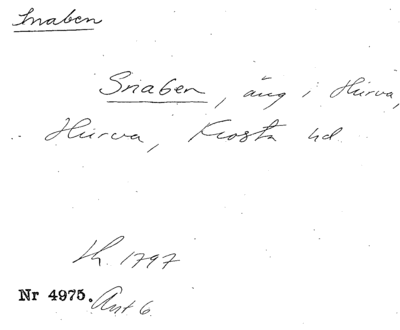 Snaben
Snaben, äng i Hurva,
Hurva, Frosta hd
lh. 1797
Nr 4975. Ant 6.